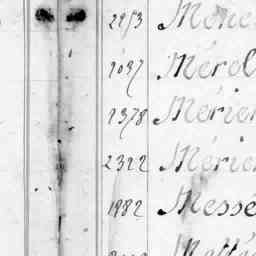 2953 Méne
1037 Mérel
1378 Mérien
2322 Mérien
1982 Messé